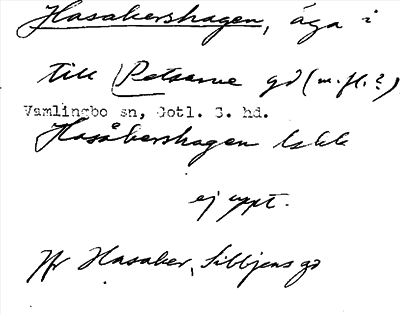 Hasakershagen, äga i
till Petsarve gd (m.fl.?)
Vamlingbo sn, Gotl. S. hd.
Hasåkershagen lskk
ej uppt.
Jfr Hasaker, Sibbjens gd